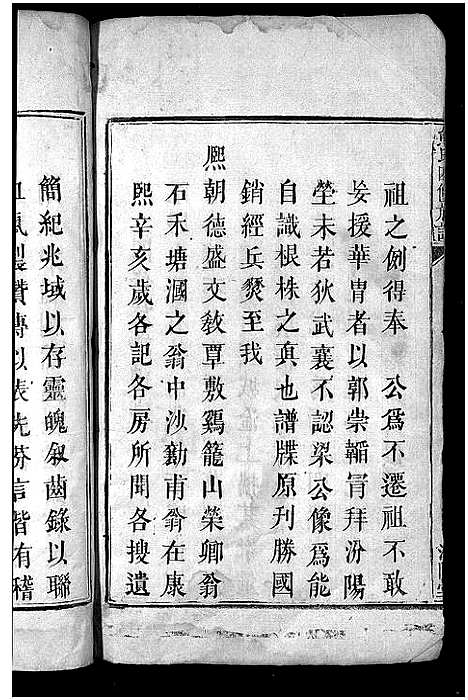 祖之例得奉　公為不遷祖不敢
妄援華胄者以郭崇韜冒拜汾陽
塋未若狄武襄不認梁公像為能
自識根株之眞也譜牒原刋勝國
銷經兵燹至我
熈朝德盛文敎覃敷鷄籠山榮卿翁
石禾塘漍之翁中沙勷甫翁在康
熙辛亥歲各記各房所聞各搜遺
簡紀兆域以存靈魄叙齒錄以聯
製贊傳以表先芬言皆有稽